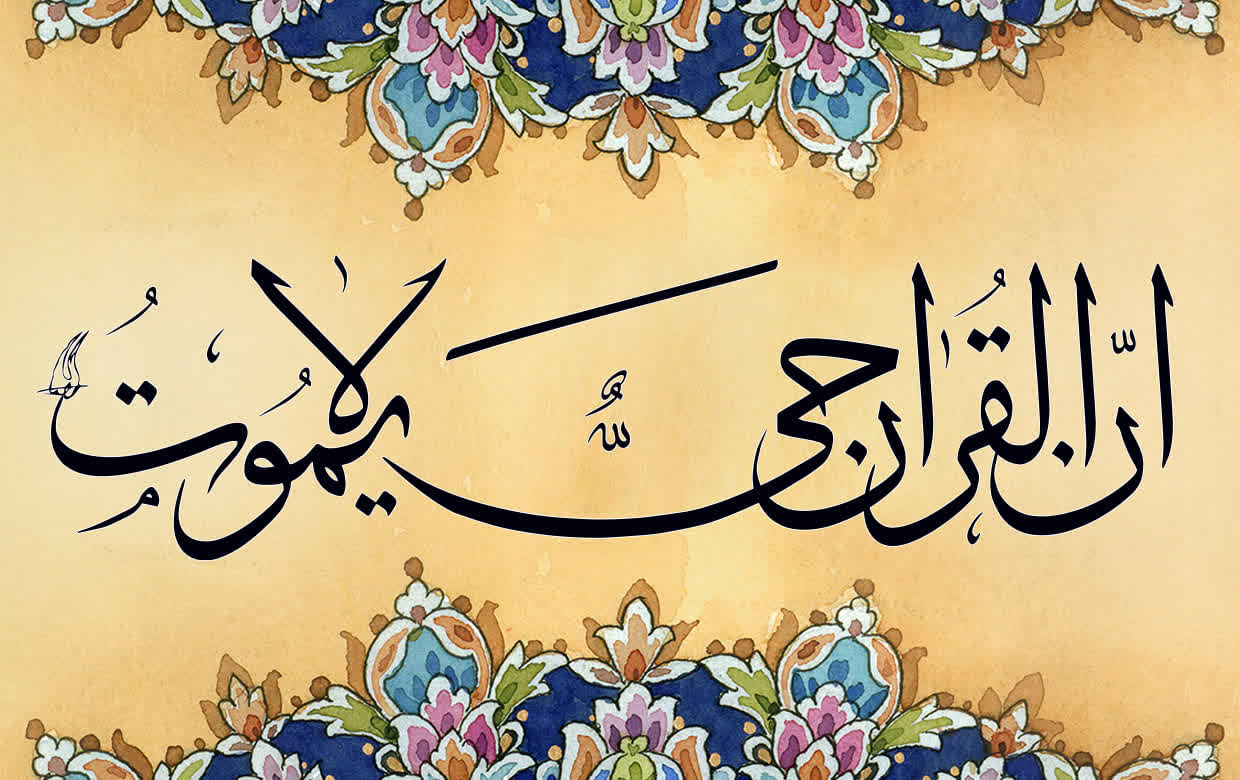 انّ القُرٰان حیٌّ لایَمُوتُ